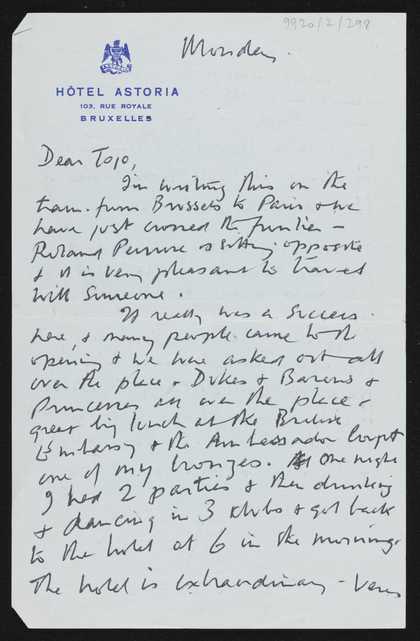 9920/2/298
Monday.
HÔTEL ASTORIA
103, RUE ROYALE
BRUXELLES
Dear Toto,
I'm writing this on the
train from Brussels to Paris & we
have just crossed the frontier –
Roland Penrose is sitting opposite
& it is very pleasant to travel
with someone.
It really was a success
here, & many people came to the
opening & we were asked out all
over the place – Dukes & Barons &
Princesses all over the place – a
great big lunch at the British
Embassy & the Ambassador bought
one of my bronzes. One night
I had 2 parties & then drinking
& dancing in 3 clubs & got back
to the hotel at 6 in the morning.
The hotel is extraordinary – very